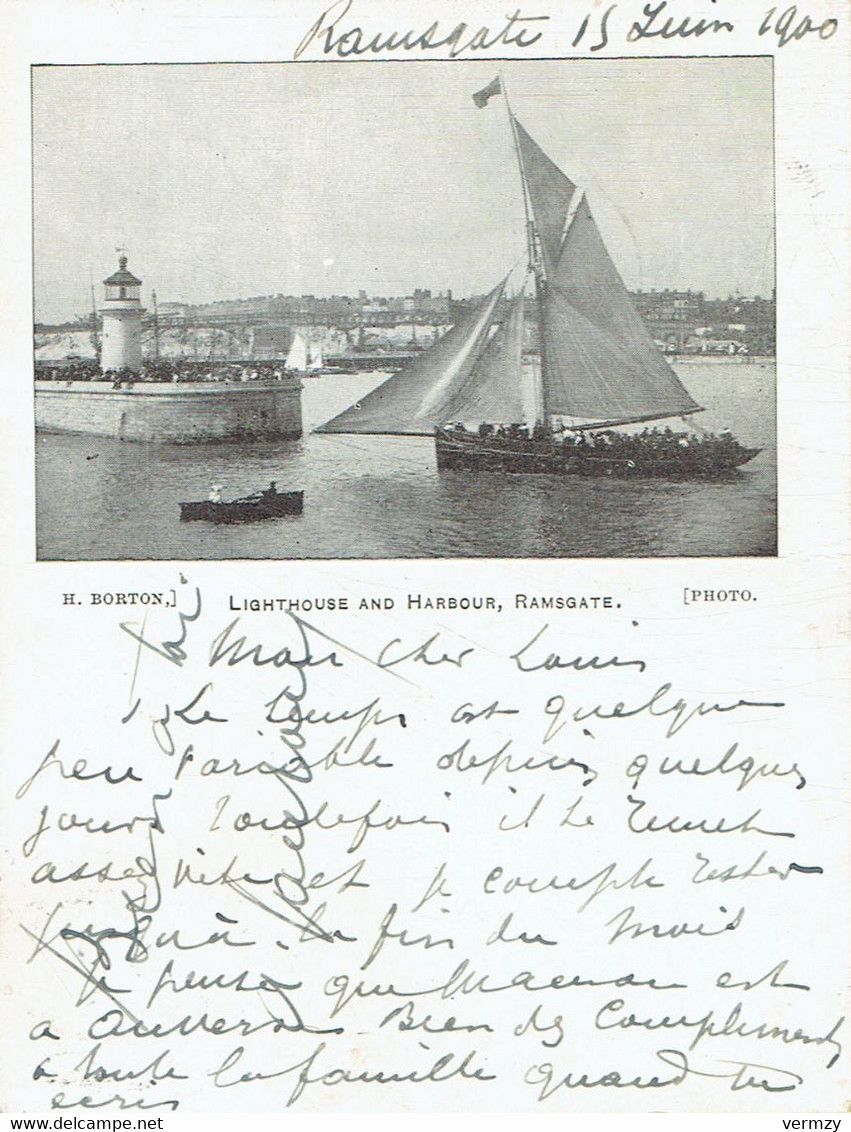 Ramsgate 15 Juin 1900
H. BORTON,] LIGHTHOUSE AND HARBOUR, RAMSGATE. [PHOTO.
Mon cher Louis
Le temps est quelque
peu variable depuis quelques
jours toutefois il se remet
assez vite et je compte rester
jusqu'à la fin du mois
Je pense que Maman est
a Auvers. Bien des Compliments
a toute la famille quand tu
ecris
vermzy